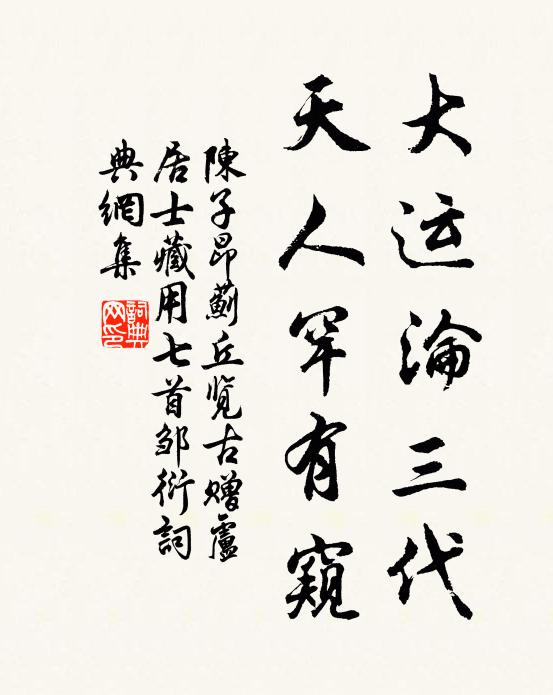 大运淪三代
天人罕有窺
陳子昂薊丘覧古贈盧
居士藏用七首邹衍詞
典網集
詞典網印